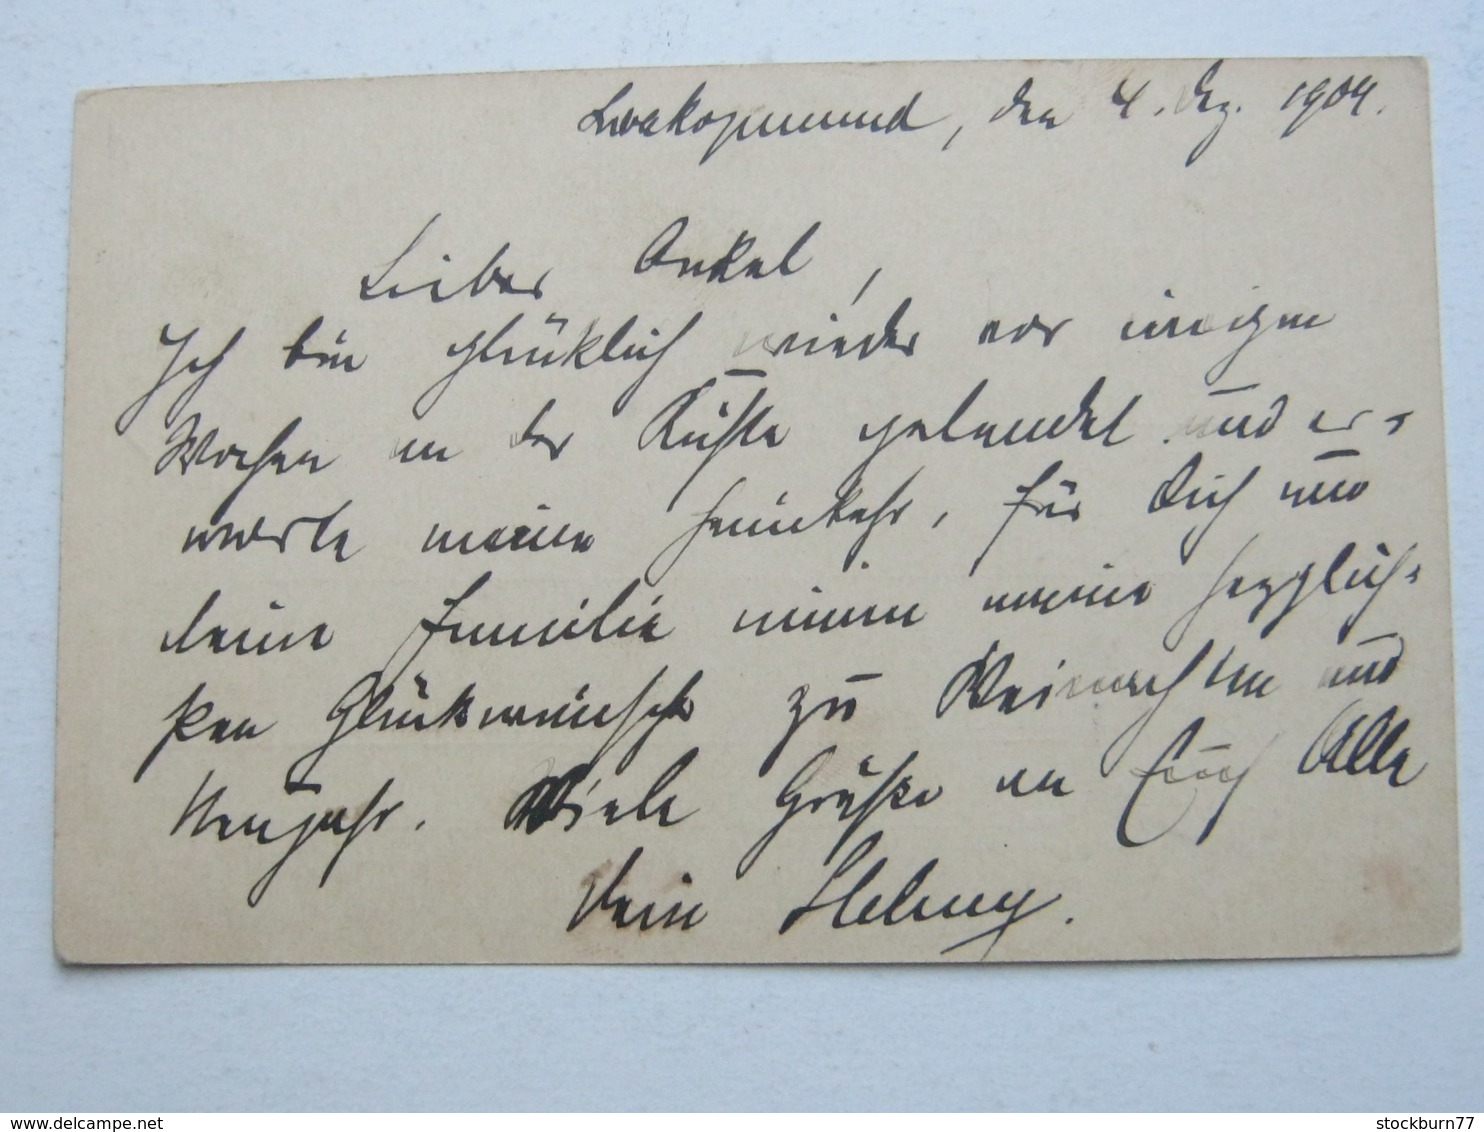 Swakopmund, den 4. Dez. 1904.
Lieber Onkel,
Ich bin glücklich wieder vor einigen
Wochen an der Küste gelandet und er-
warte meine Heimkehr, für Dich und
deine Familie meine herzlich-
sten Glückwünsche zu Weinachten und
Neujahr. Viele Grüße an Euch Alle
Dein
stockburn77
www.delcampe.net